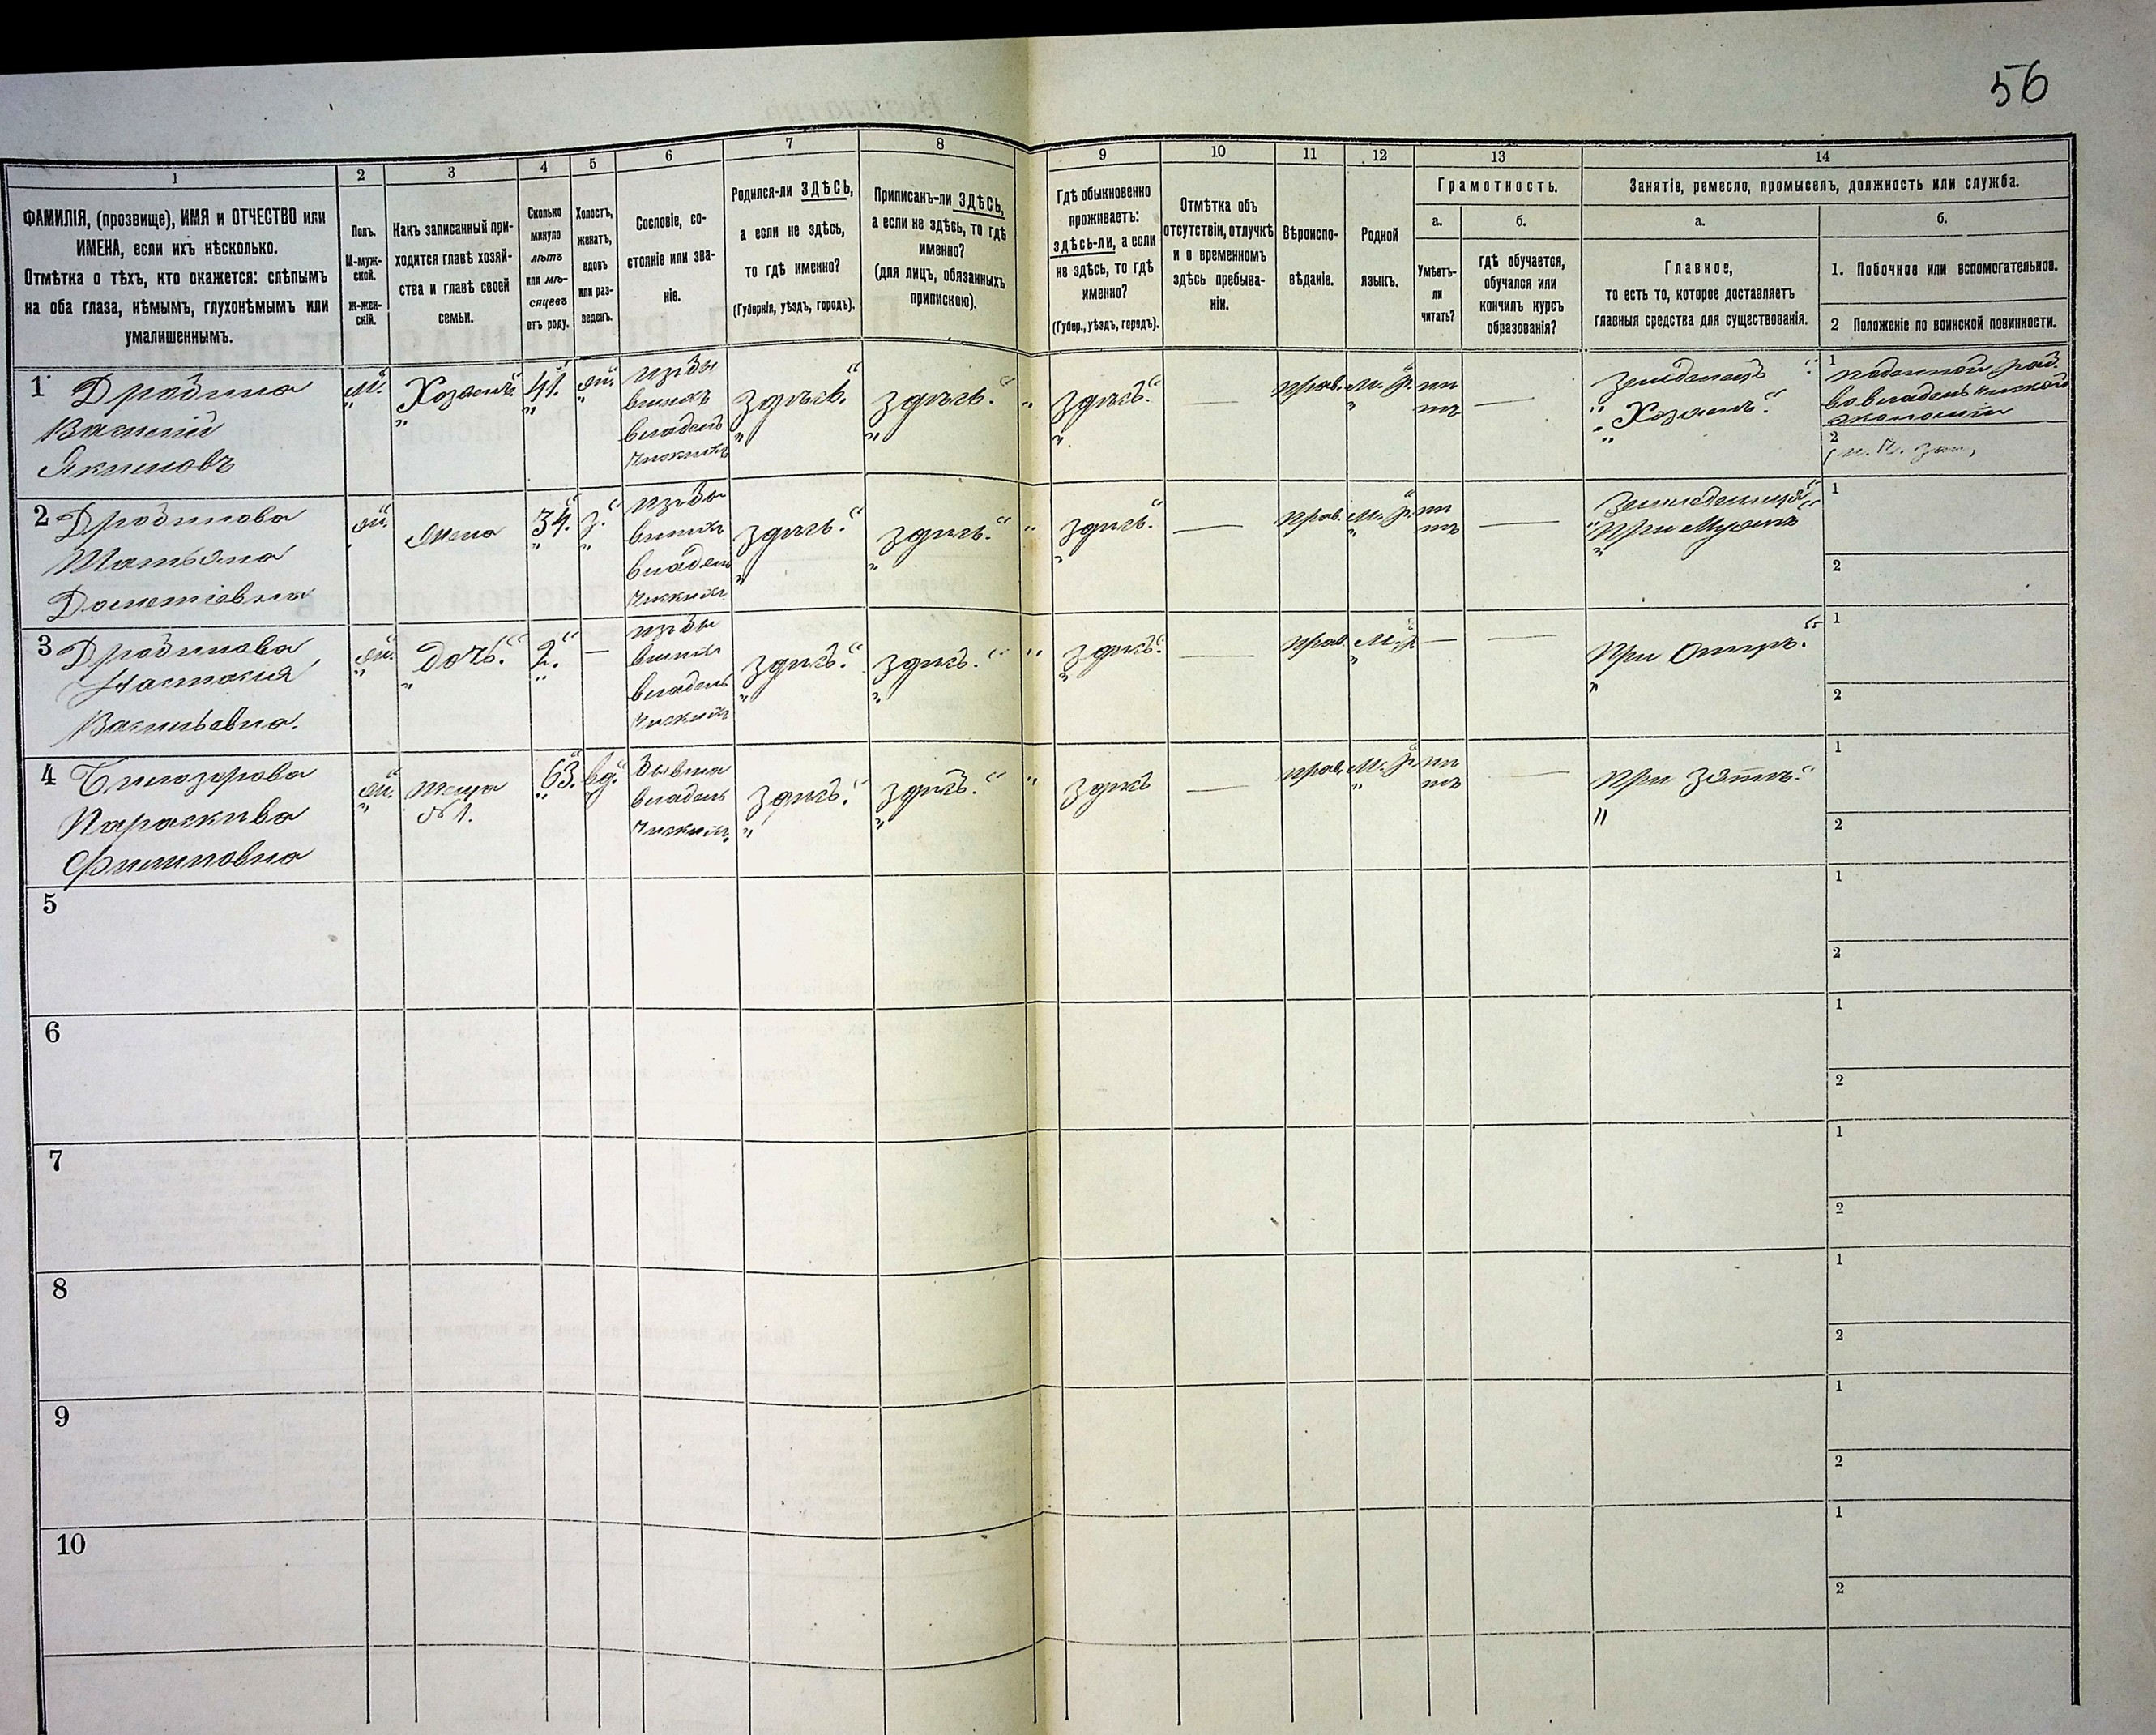 56
1 2 3 4 5 6 7 8 9 10 11 12 13 14
ФАМИЛІЯ, (прозвище), ИМЯ и ОТЧЕСТВО или
ИМЕНА, если ихъ нѣсколько.
Отмѣтка о тѣхъ, кто окажется: слѣпымъ
на оба глаза, нѣмымъ, глухонѣмымъ или
умалишеннымъ.
Полъ.
М-муж-
ской.
Ж-жен-
скій.
Какъ записанный при-
ходится главѣ хозяй-
ства и главѣ своей
семьи.
Сколько
минуло
лѣтъ
или мѣ-
сяцевъ
отъ роду.
Холостъ,
женатъ,
вдовъ
или раз-
веденъ.
Сословіе, со-
стояніе или зва-
ніе.
Родился-ли ЗДѢСЬ,
а если не здѣсь,
то гдѣ именно?
(Губернія, уѣздъ, городъ).
Приписанъ-ли ЗДѢСЬ,
а если не здѣсь, то гдѣ
именно?
(для лицъ, обязанныхъ
припискою).
Гдѣ обыкновенно
проживаетъ:
здѣсь-ли, а если
не здѣсь, то гдѣ
именно?
(Губер., уѣздъ, городъ).
Отмѣтка объ
отсутствіи, отлучкѣ
и о временномъ
здѣсь пребыва-
ніи.
Вѣроиспо-
вѣданіе.
Родной
языкъ.
Грамотность.
а.
Умѣетъ-
ли
читать?
б.
гдѣ обучается,
обучался или
кончилъ курсъ
образованія?
Занятіе, ремесло, промыселъ, должность или служба.
а.
Главное,
то есть то, которое доставляетъ
главныя средства для существованія.
б.
1. Побочное или вспомогательное.
2 Положеніе по воинской повинности.
1 Дробина
Василій
Якимовъ
м.
Хозяинъ
41.
ж.
изъ бы
вшихъ
владель
ческихъ
здѣсь.
здѣсь.
здѣсь.
—
прав.
м. р.
нѣ
тъ
—
Земледелецъ
Хозяинъ.
1 поденной раб.
во владельческой
экономіи
2
2 Дробинова
Татьяна
Дометіевна
ж.
жена
34.
з.
изъ бы
вшихъ
владель
ческихъ
здѣсь.
здѣсь.
здѣсь.
—
прав.
м. р.
нѣ
тъ
—
При Мужѣ
1
2
3 Дробинова
Настасія
Васильевна.
ж.
Дочь.
2.
—
изъ бы
вшихъ
владель
ческихъ
здѣсь.
здѣсь.
здѣсь.
—
прав.
м. р.
—
—
При Отцѣ.
1
2
4 Билозерова
Параскива
Филиповна
ж.
теща
№ 1.
63.
вд.
бывша
владель
ческихъ
здѣсь.
здѣсь.
здѣсь
—
прав.
м. р.
нѣ
тъ
—
При зятѣ.
1
2
5
1
2
6
1
2
7
1
2
8
1
2
9
1
2
10
1
2